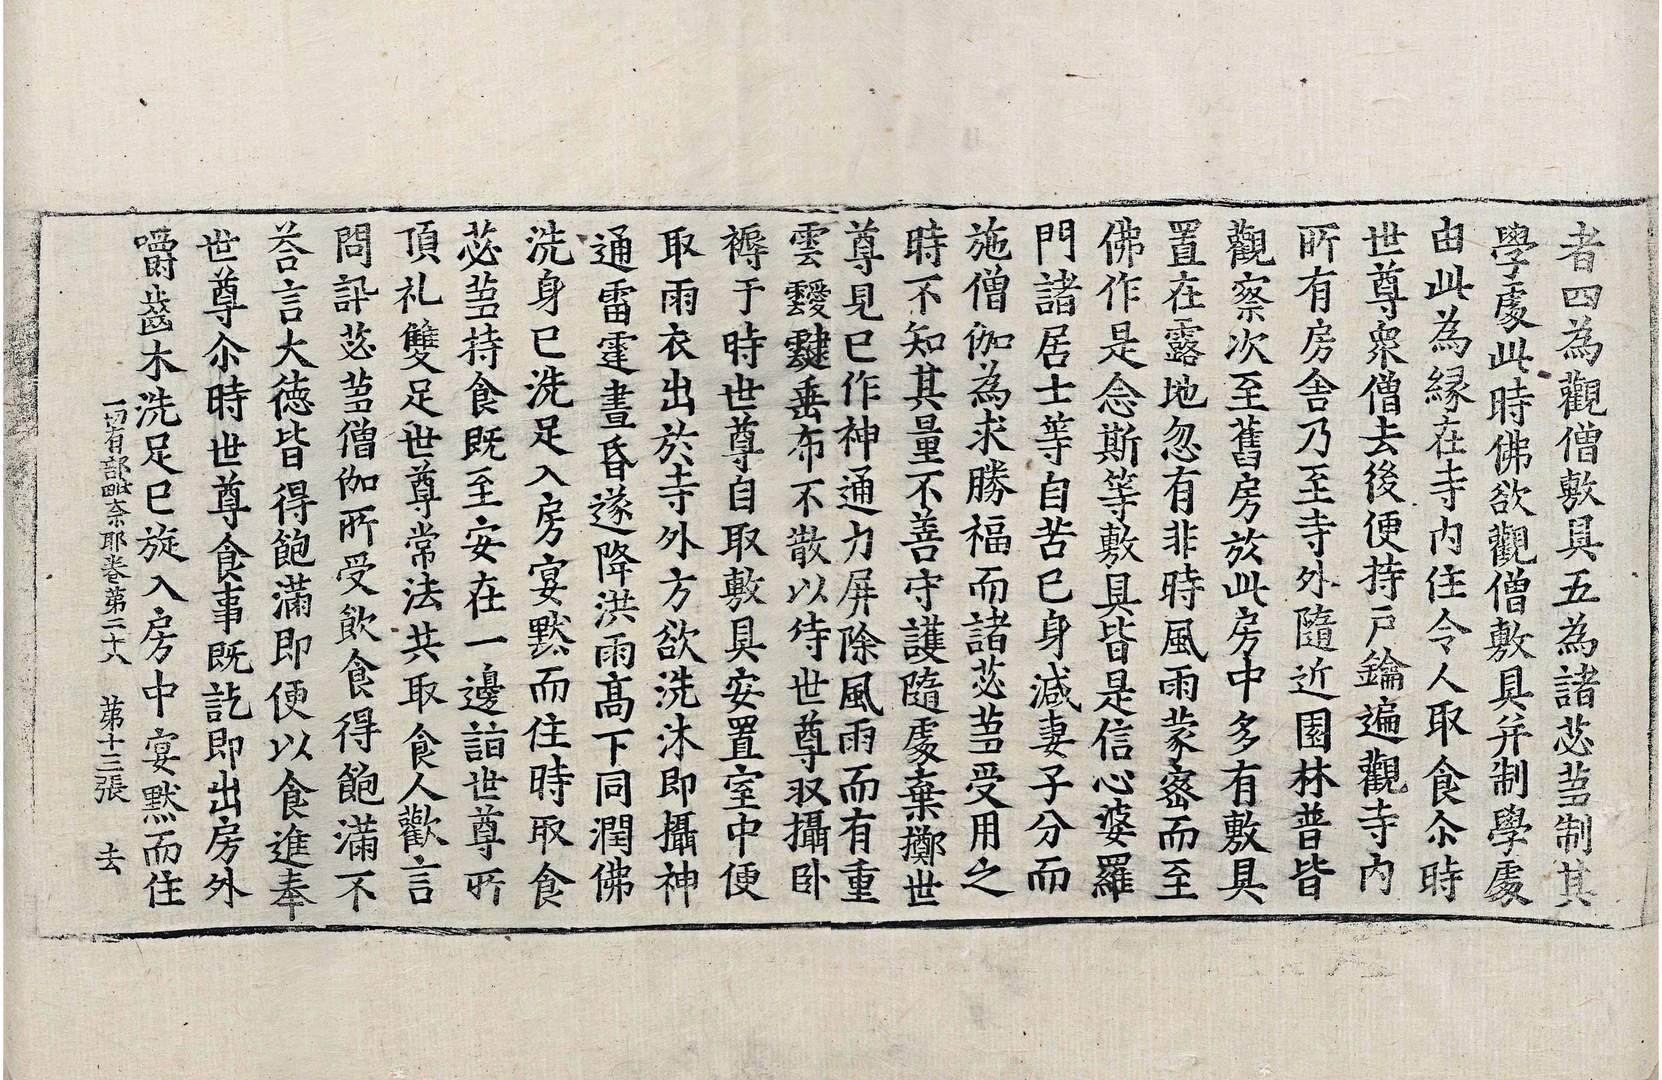 者四為觀僧敷具五為諸苾芻制其
學處此時佛欲觀僧敷具并制學處
由此為縁在寺內住令人取食尒時
世尊衆僧去後便持戶鑰遍觀寺內
所有房舍乃至寺外隨近園林普皆
觀察次至舊房於此房中多有敷具
置在露地忽有非時風雨蒙密而至
佛作是念斯等敷具皆是信心婆羅
門諸居士等自苦己身減妻子分而
施僧伽為求勝福而諸苾芻受用之
時不知其量不善守護隨處棄擲世
尊見已作神通力屏除風雨而有重
雲靉靆垂布不散以待世尊収攝卧
褥于時世尊自取敷具安置室中便
取雨衣出於寺外方欲洗沐即攝神
通雷霆晝昏遂降洪雨髙下同潤佛
洗身已洗足入房宴黙而住時取食
苾芻持食既至安在一邊詣世尊所
頂礼雙足世尊常法共取食人歡言
問訊苾芻僧伽所受飲食得飽滿不
荅言大徳皆得飽滿即便以食進奉
世尊尒時世尊食事既訖即出房外
嚼齒木洗足已旋入房中宴黙而住
一切有部毗奈耶卷第二十八　第十三張　去